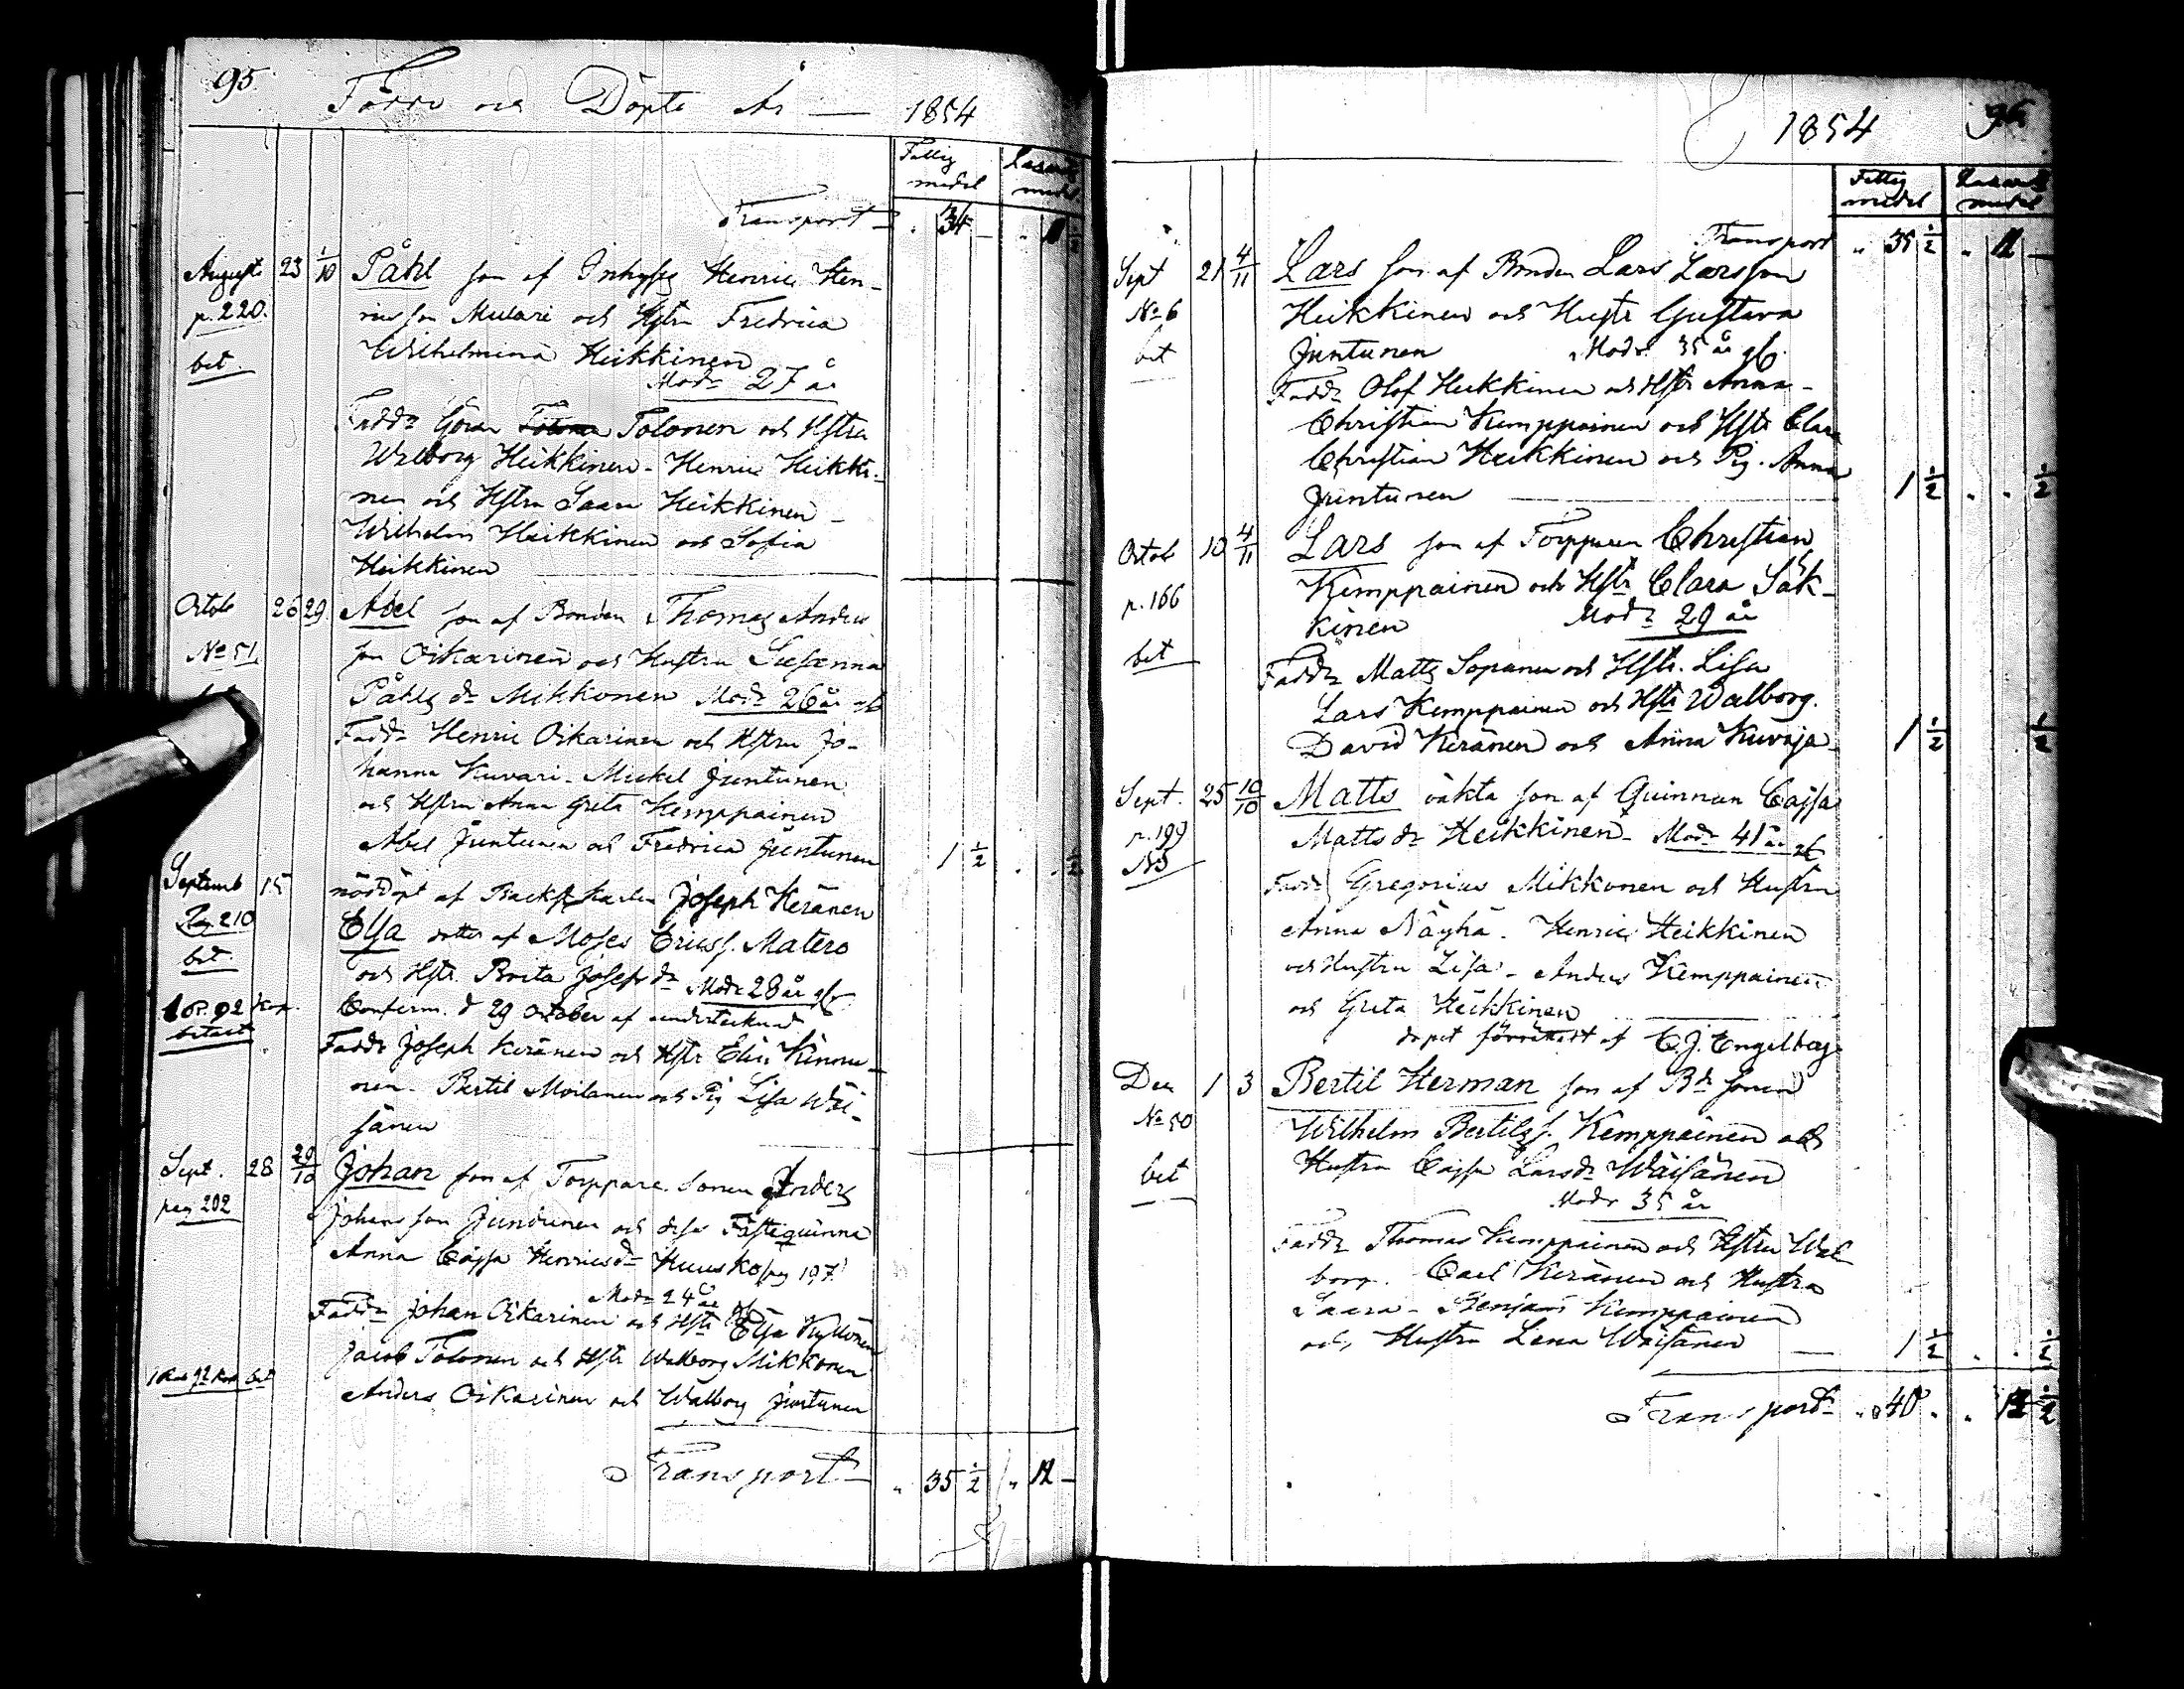 95.
Födde och Döpte År — 1854
Fattig medel Lasaretts medel
Transport 34 - 11 1/2
Augusti 23 1/10 Påhl son af Inhyses Henric Hen-
p. 220. ricsson Mulari och Hstru Fredrica
bet. Wilhelmina Heikkinen
Modr 27 år
Faddr Göran Tolonen och Hstru
Walborg Heikkinen - Henric Heikki-
nen och Hstru Saara Heikkinen -
Wilhelm Heikkinen och Sofia
Heikkinen
Octob 26 29 Abel son af Bonden Thomas Anders
No 51 son Oikarinen och Hustru Susanna
Påhls dr Mikkonen Modr 26 år
Faddr Henric Oikarinen och Hstru Jo-
hanna Kuvari - Mickel Juntunen
och Hstru Anna Greta Kemppainen
Abel Juntunen och Fredrica Juntunen 1 1/2 1/2
Septemb 15 nöddöpt af Backst. karlen Joseph Keränen
Pag 210 Elsa dotter af Moses Ericss. Matero
bet. och Hstr. Brita Josefs dr Modr 28 år
92 kop. Conferm. d 29 October af undertecknad
betalt Faddr Joseph Keränen och Hstr Elin Kinnu-
nen - Bertil Moilanen och Pig Lisa Wäi-
sänen
Sept. 28 29/10 Johan son af Torppare sonen Anders
pag 202 Johansson Juntunen och dess Fästequinna
Anna Cajsa Henricsdr Kuusko pag 197
Modr 24 år
Faddr Johan Oikarinen och Hstr Elsa Kyllönen
Jacob Tolonen och Hstr Walborg Mikkonen
1 Rub 92 Kop bet Anders Oikarinen och Walborg Juntunen
Transport 35 1/2 12 -
1854 96
Fattig medel Lasaretts medel
Transport 35 1/2 12 -
Sept 21 4/11 Lars son af Bonden Lars Larsson
No 6 Heikkinen och Hustr Gustava
bet Juntunen Modr 35 år
Faddr Olof Heikkinen och Hstr Anna -
Christian Kemppainen och Hstr Clara
Christian Heikkinen och Pig. Anna
Juntunen 1 1/2 1/2
Octob 10 4/11 Lars son af Torpparen Christian
p. 166 Kemppainen och Hstr Clara Säk-
kinen Modr 29 år
bet Faddr Matts Sopanen och Hstr. Lisa
Lars Kemppainen och Hstr Walborg.
David Keränen och Anna Kuvaja 1 1/2 1/2
Sept. 25 10/10 Matts oäkta son af Quinnan Cajsa
p. 199 Mattsdr Heikkinen - Modr 41 år
NB
Faddr Gregorius Mikkonen och Hustru
Anna Näyhä. Henric Heikkinen
och Hustru Lisa - Anders Kemppainen
och Greta Heikkinen
dopet förrättadt af C. J. Engelberg
Dec 1 3 Bertil Herman son af Bd sonen
No 50 Wilhelm Bertilss. Kemppainen och
bet Hustru Cajsa Larsdr Wäisänen
Modr 35 år
Faddr Thomas Kemppainen och Hstru Wal
borg. Carl Keränen och Hustru
Saara - Benjam Kemppainen
och Hustru Lena Wäisänen 1 1/2 1/2
Transport 40 1/2